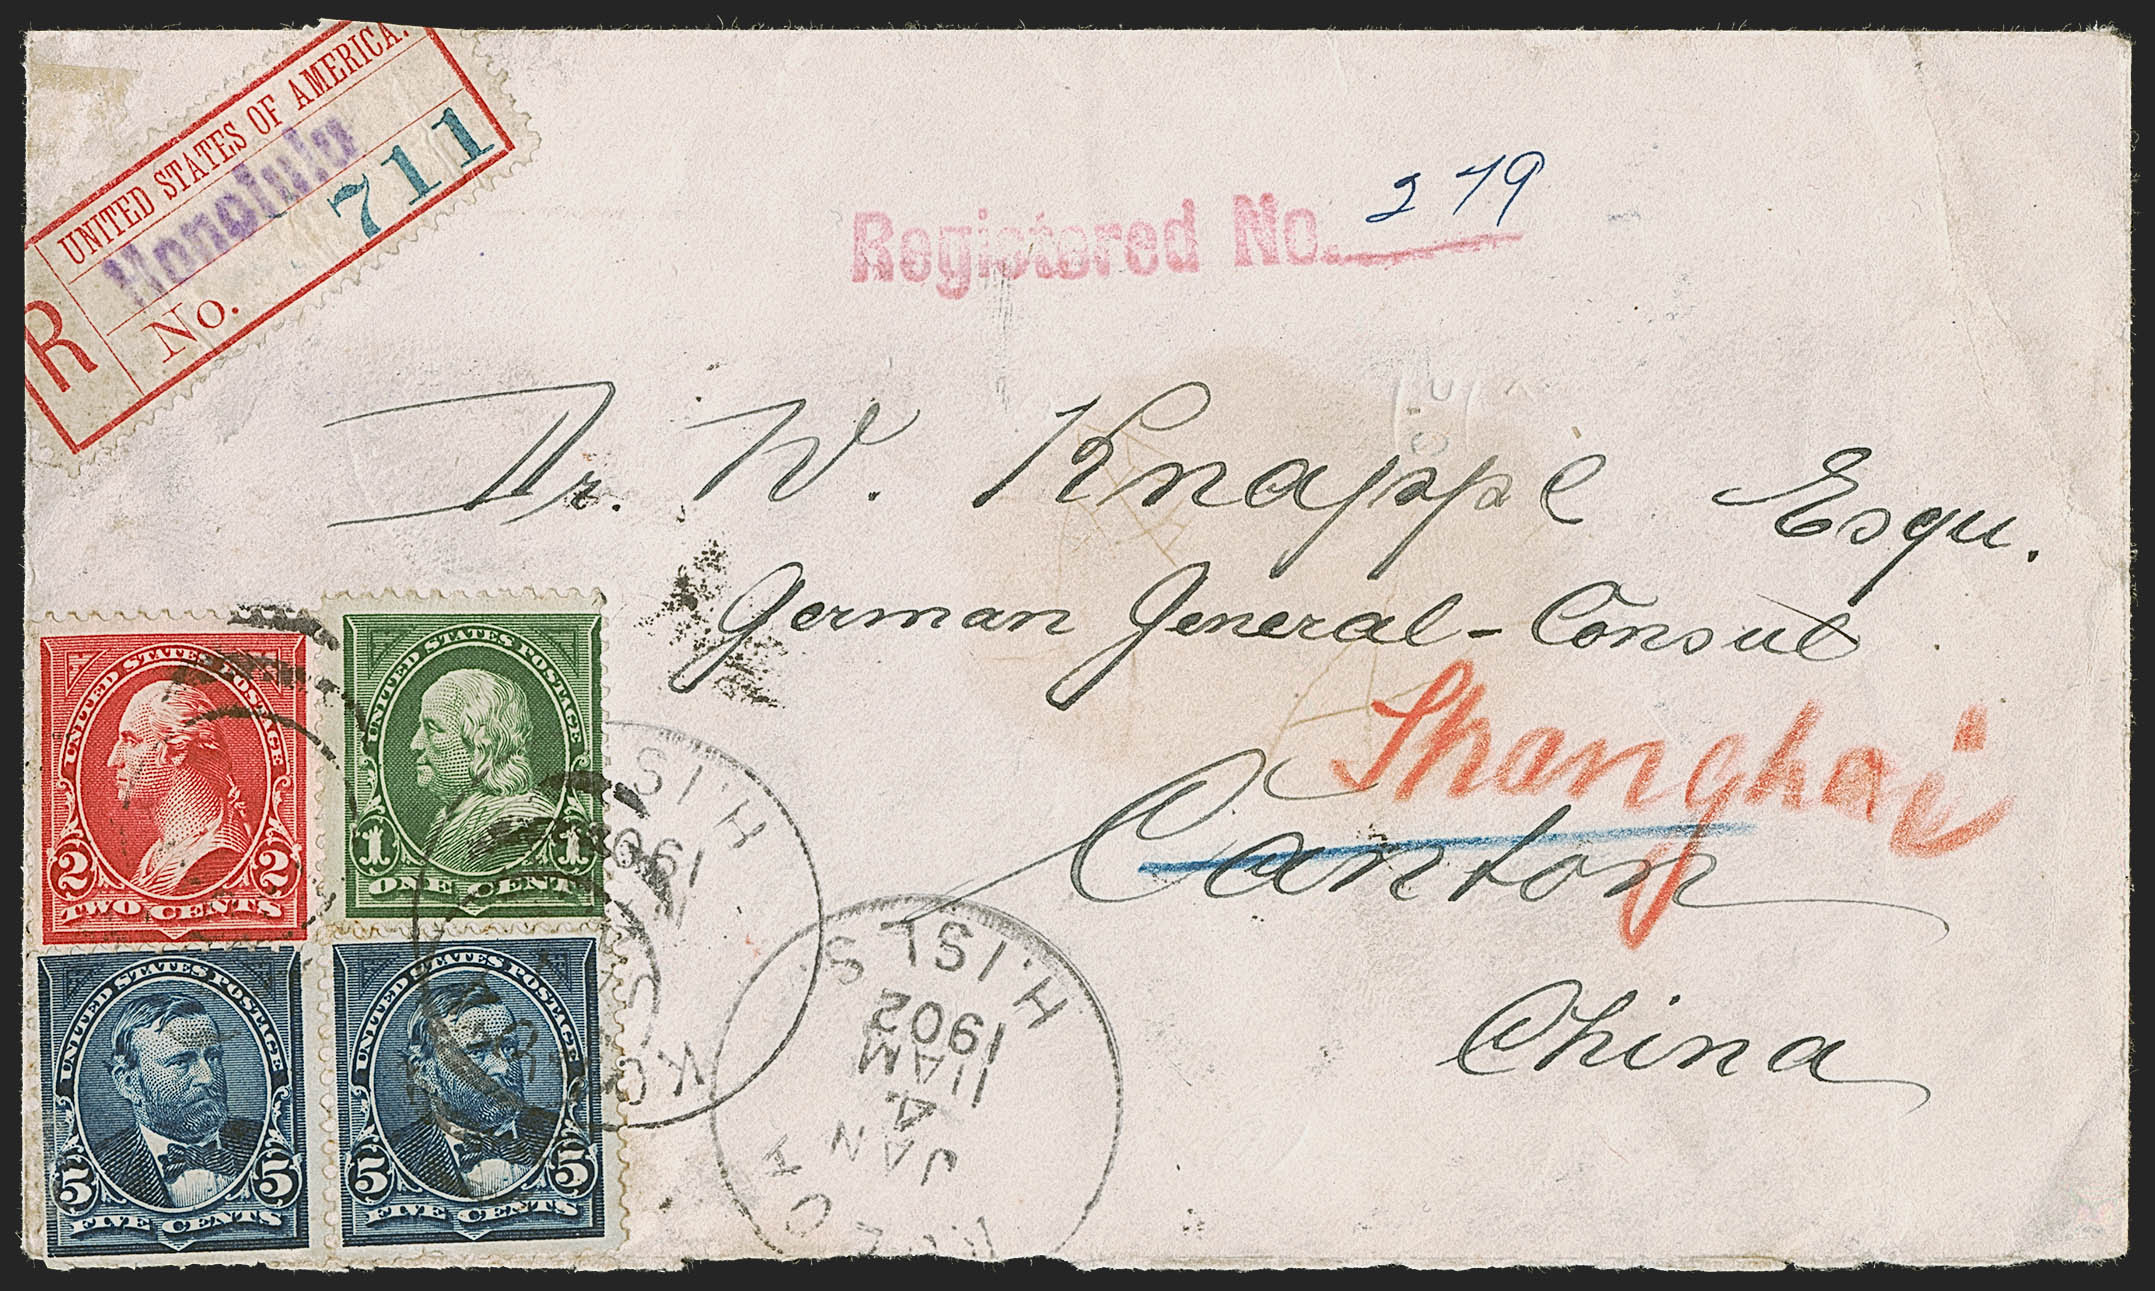 UNITED STATES OF AMERICA.
Honolulu
R
No. 711
Registered No. 279
Dr. W. Knappe Esqu.
German General-Consul
Shanghai
Canton
China
UNITED STATES POSTAGE
2 2
TWO CENTS
UNITED STATES POSTAGE
1 1
ONE CENT
UNITED STATES POSTAGE
5 5
FIVE CENTS
UNITED STATES POSTAGE
5 5
FIVE CENTS
H.ISL
H.ISLS.
1902
11AM
4.
JAN
KOLOA